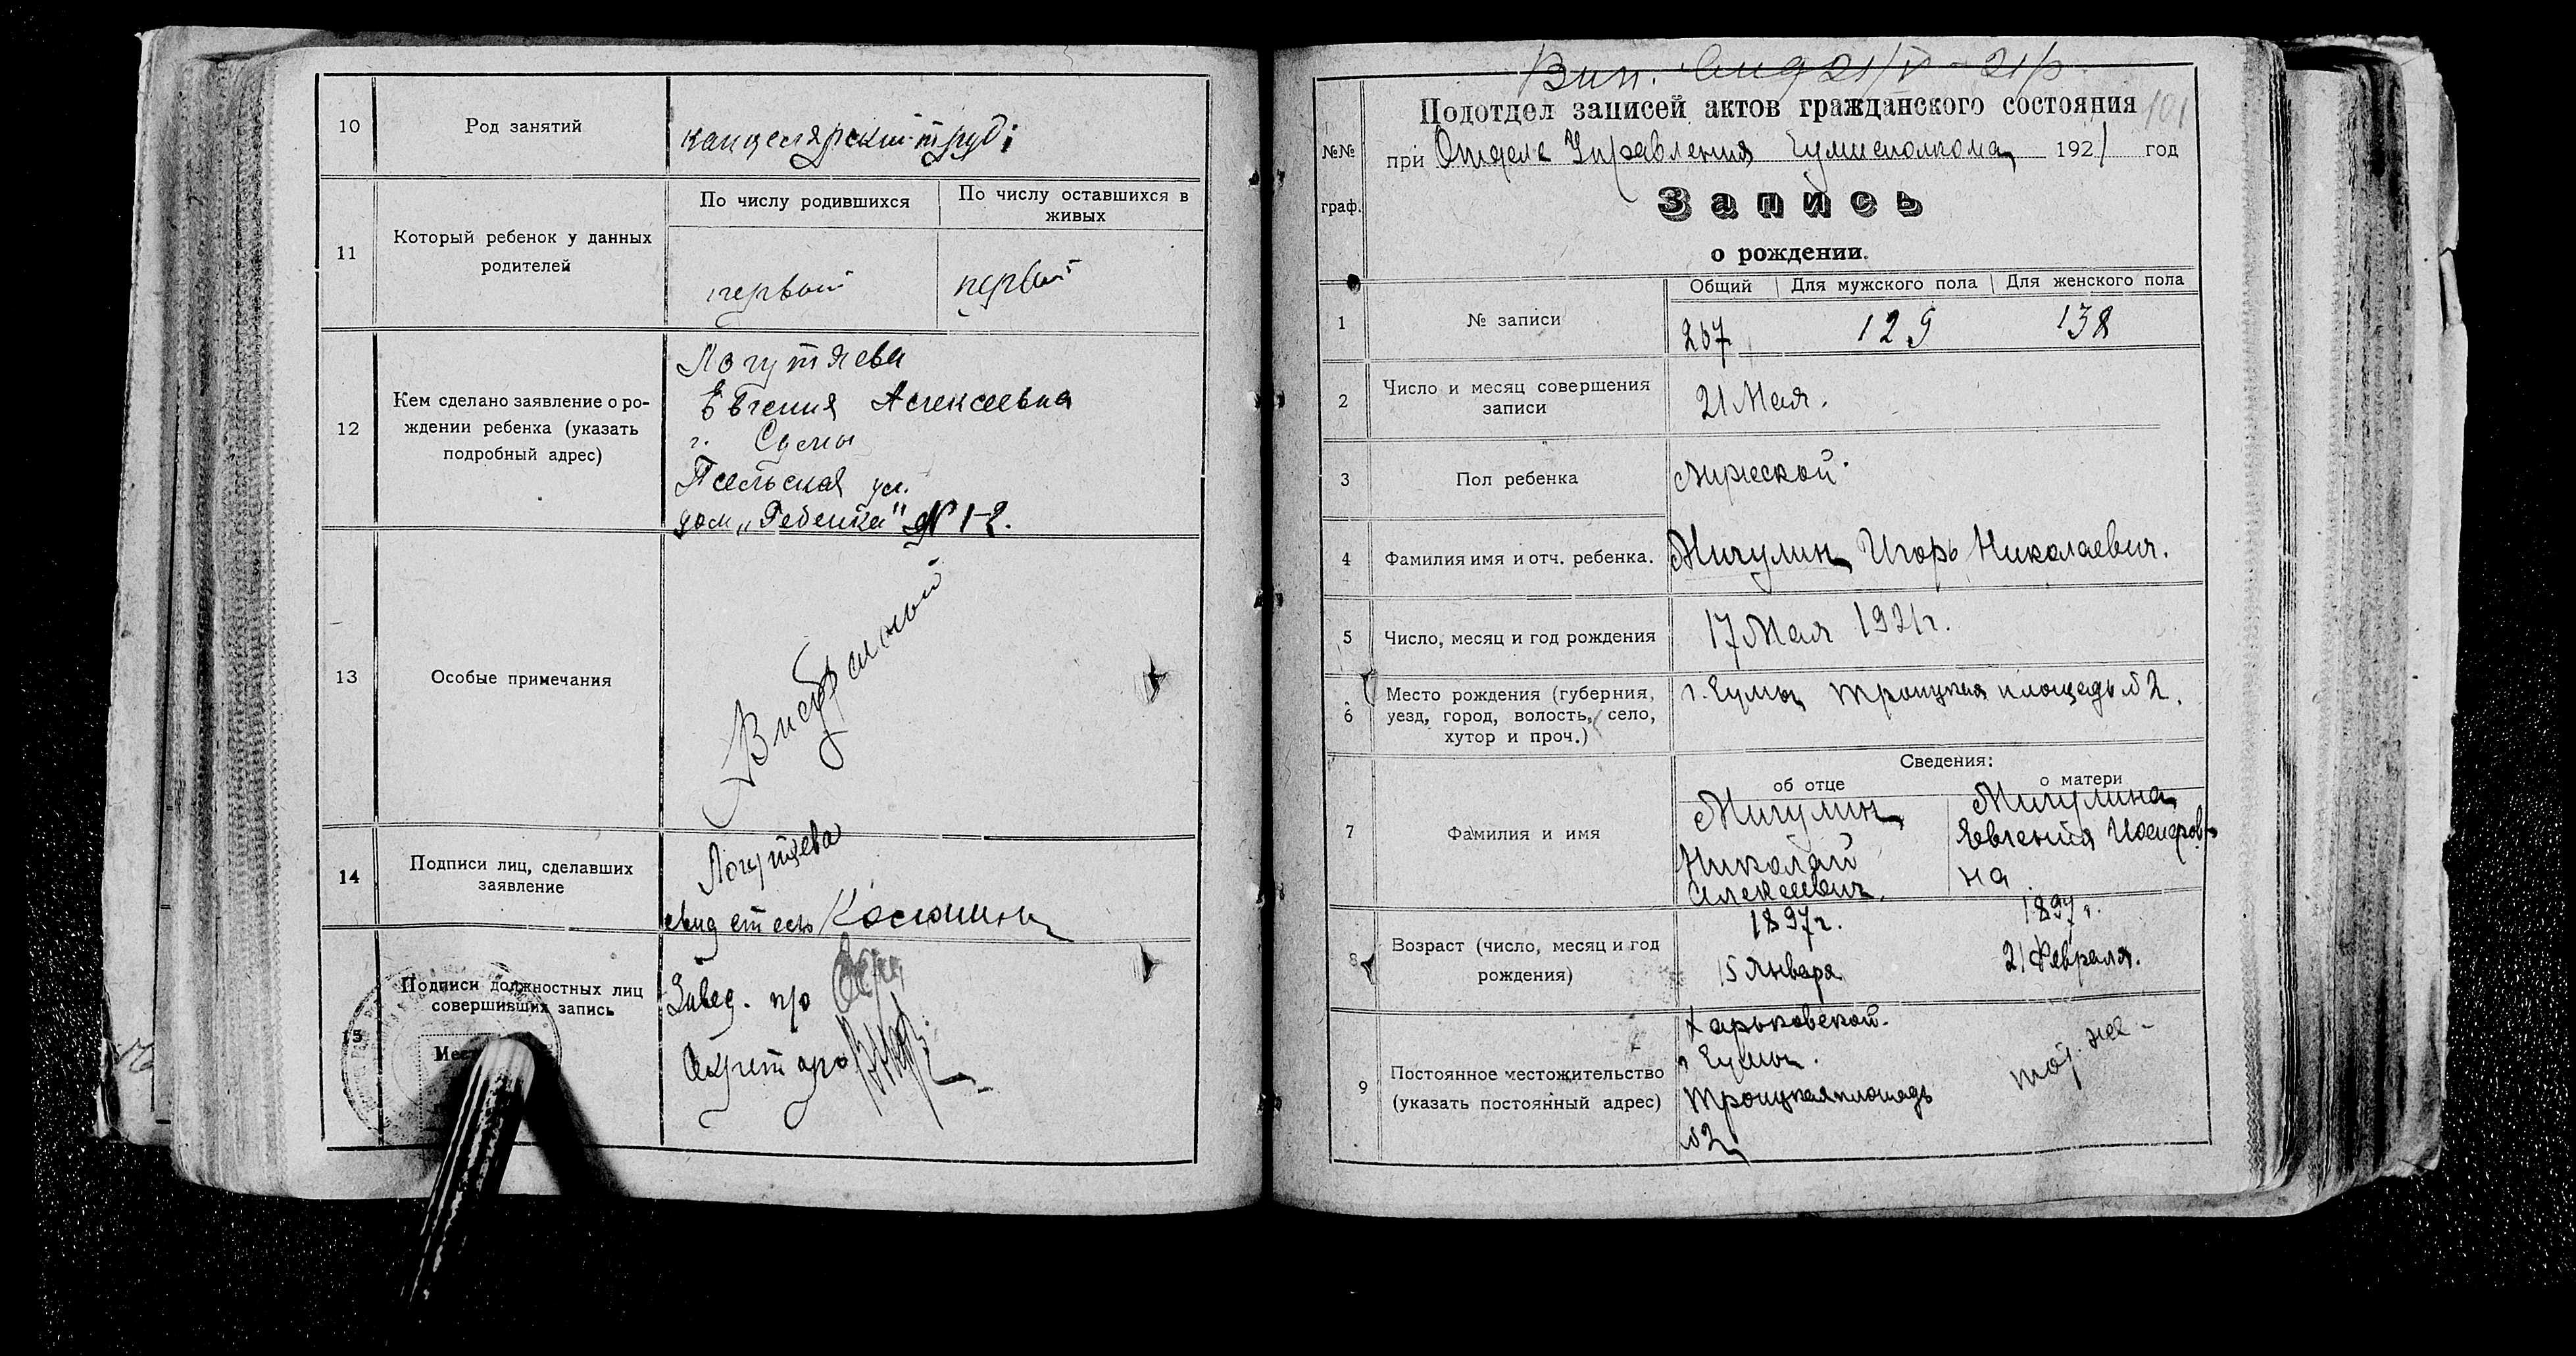 10
Род занятий
канцелярский труд
11
Который ребенок у данных
родителей
По числу родившихся
По числу оставшихся в
живых
первый
первый
12
Кем сделано заявление о ро-
ждении ребенка (указать
подробный адрес)
Логутяева
Евгения Алексеевна
г. Сумы
Псельская ул.
дом „Ребенка" № 12.
13
Особые примечания
14
Подписи лиц, сделавших
заявление
Логутяева
15
Подписи должностных лиц
совершивших запись
Завед. п/о
Секретарь
101
Подотдел записей актов гражданского состояния
№№
граф.
при Отделе Управления Сумисполкома 1921 год
Запись
о рождении.
Общий
Для мужского пола
Для женского пола
1
№ записи
267
129
138
2
Число и месяц совершения
записи
21 Мая.
3
Пол ребенка
Мужеской
4
Фамилия имя и отч. ребенка.
Мигулин Игорь Николаевич.
5
Число, месяц и год рождения
17 Мая 1921 г.
6
Место рождения (губерния,
уезд, город, волость, село,
хутор и проч.)
г. Сумы Троицкая площадь № 2.
Сведения:
об отце
о матери
7
Фамилия и имя
Мигулин
Николай
Алексеевич.
Мигулина
Евгения
на
8
Возраст (число, месяц и год
рождения)
1897 г.
15 Января
1897 г.
21 Февраля.
9
Постоянное местожительство
(указать постоянный адрес)
Харьковской.
г Сумы.
Троицкая площадь
№ 2
то же